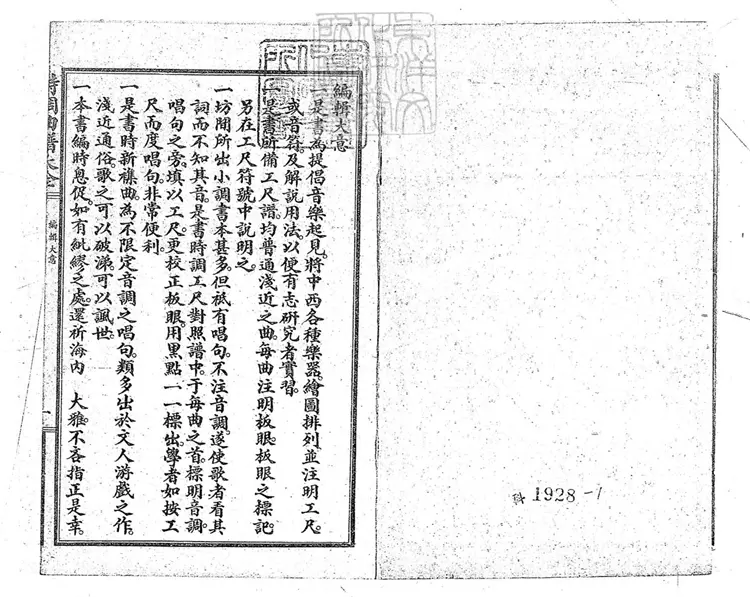 編輯大意
一是書爲提倡音樂起見。將中西各種樂器。繪圖排列。並注明工尺。
或音符。及解說用法。以便有志研究者實習。
一是書所備工尺譜。均普通淺近之曲。每曲注明板眼。板眼之標記。
另在工尺符號中說明之。
一坊間所出小調書本甚多。但祇有唱句。不注音調。遂使歌者看其
詞而不知其音。是書時調工尺對照譜中。于每曲之首。標明音調。
唱句之旁。填以工尺。更校正板眼。用黑點一一標出。學者如按工
尺而度唱句。非常便利。
一是書時新襍曲。爲不限定音調之唱句。類多出於文人游戲之作。
淺近通俗。歌之可以破涕。可以諷世。
一本書編時怱促。如有紕繆之處。還祈海內　大雅。不吝指正是幸。
編輯大意
一
科 1928-1